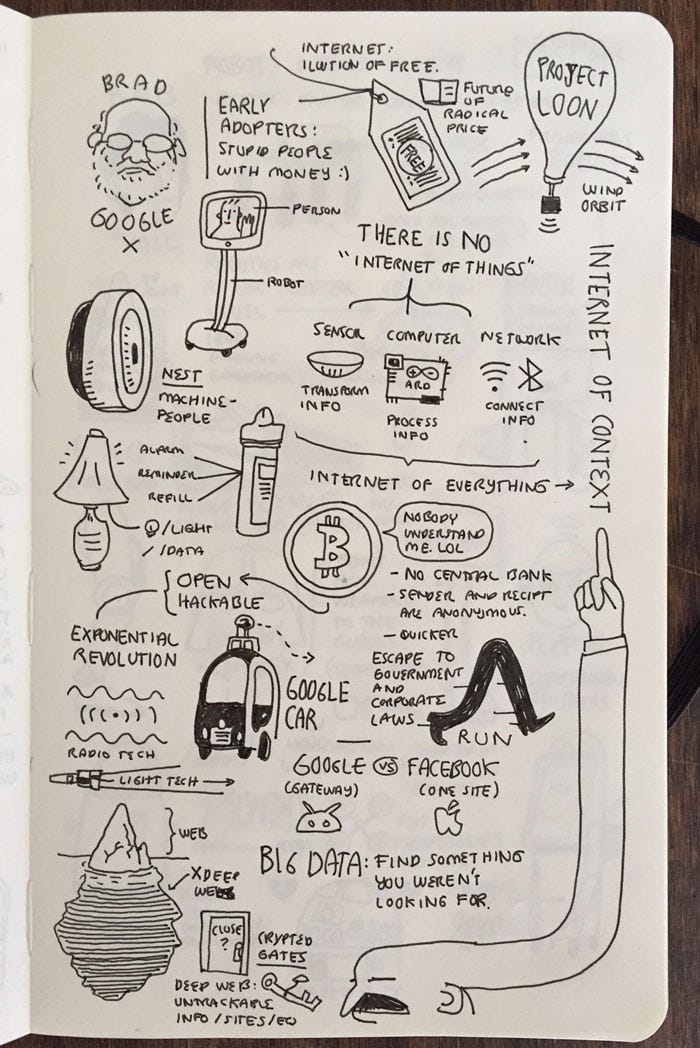 INTERNET:
ILUTION OF FREE.
BRAD
GOOGLE
X
EARLY
ADOPTERS:
STUPID PEOPLE
WITH MONEY :)
FREE
FUTURE
OF
RADICAL
PRICE
PROJECT
LOON
WIND
ORBIT
PERSON
ROBOT
THERE IS NO
"INTERNET OF THINGS"
SENSOR
TRANSFORM
INFO
COMPUTER
ARD
PROCESS
INFO
NETWORK
CONNECT
INFO
INTERNET OF CONTEXT
NEST
MACHINE-
PEOPLE
ALARM
REMINDER
REFILL
/LIGHT
/DATA
INTERNET OF EVERYTHING →
B
NOBODY
UNDERSTAND
ME. LOL
- NO CENTRAL BANK
- SENDER AND RECIPT
ARE ANONYMOUS.
- QUICKER
OPEN
HACKABLE
EXPONENTIAL
REVOLUTION
RADIO TECH
LIGHT TECH
GOOGLE
CAR
ESCAPE TO
GOVERNMENT
AND
CORPORATE
LAWS
RUN
GOOGLE VS FACEBOOK
(GATEWAY) (ONE SITE)
WEB
XDEEP
WEB
BIG DATA: FIND SOMETHING
YOU WEREN'T
LOOKING FOR.
CLOSE
?
CRYPTED
GATES
DEEP WEB:
UNTRACKABLE
INFO/SITES/